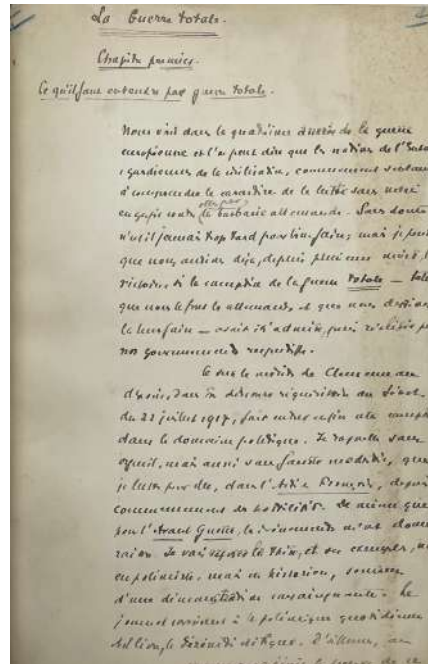 La Guerre totale.
Chapitre premier.
Ce qu'il faut entendre par guerre totale.
Nous voici dans la quatrième année de la guerre
européenne et l'on peut dire que les nations de l'Entente
gardiennes de la civilisation, commencent seulement
à comprendre le caractère de la lutte sans merci
engagée contre elles par la barbarie allemande. Sans doute
n'est-il jamais trop tard pour bien faire; mais je pense
que nous aurions déjà, depuis plusieurs mois, la
victoire, si la conception de la guerre totale — telle
que nous la font les allemands, et que nous devons
la leur faire — avait été admise, puis réalisée par
nos gouvernements respectifs.
Ce sera le mérite de Clemenceau
d'avoir, dans son discours réquisitoire au Sénat
du 22 juillet 1917, fait entrer enfin cette conception
dans le domaine politique. Je rappelle sans
orgueil, mais aussi sans fausse modestie, que
je lutte pour elle, dans l'Action Française, depuis
commencement des hostilités. De même que
pour l'Avant Guerre, les événements m'ont donné
raison. Je vais exposer la thèse, et ses exemples, non
en polémiste, mais en historien, soucieux
d'une démonstration convaincante. Le
journal convient à la polémique quotidienne